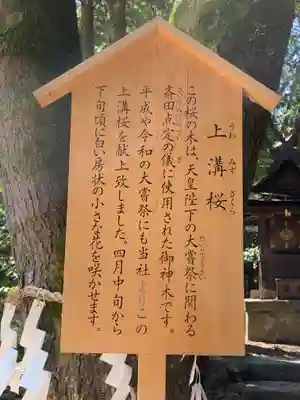 上溝桜
うわ みず ざくら
この桜の木は、天皇陛下の大嘗祭に関わる
だいじょうさい
斎田点定の儀に使用された御神木です。
平成や今和の大嘗祭にも当社よりこの
上溝桜を献上致しました。四月中旬から
下旬頃に白い房状の小さな花を咲かせます。